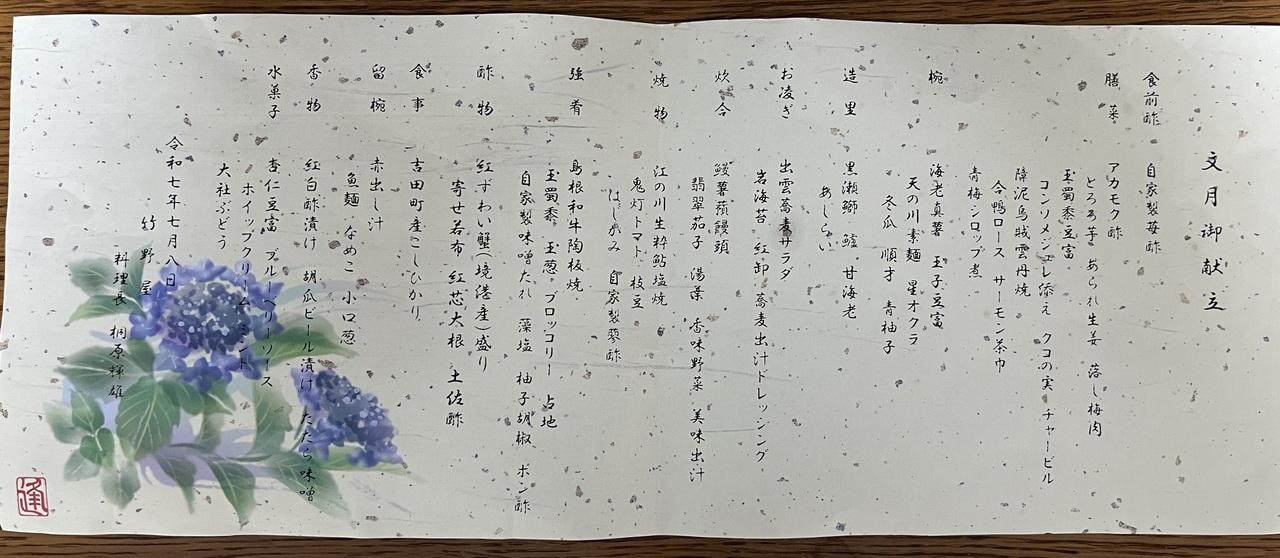 文月御献立
食前酢 自家製苺酢
膳菜 アカモク酢
とろろ芋 あられ生姜 落し梅肉
玉蜀黍豆富
コンソメジュレ添え クコの実 チャービル
障泥烏賊雲丹焼
合鴨ロース サーモン茶巾
青梅シロップ煮
椀 海老真薯 玉子豆富
天の川素麺 星オクラ
冬瓜 順才 青柚子
造里 黒瀬鰤 鱸 甘海老
あしらい
お凌ぎ 出雲蕎麦サラダ
岩海苔 紅卸 蕎麦出汁ドレッシング
炊合 鰻薯蕷饅頭
翡翠茄子 湯葉 香味野菜 美味出汁
焼物 江の川生粋鮎塩焼
鬼灯トマト 枝豆
はじかみ 自家製蓼酢
強肴 島根和牛陶板焼
玉蜀黍 玉葱 ブロッコリー 占地
自家製味噌たれ 藻塩 柚子胡椒 ポン酢
酢物 紅ずわい蟹(境港産)盛り
寄せ若布 紅芯大根 土佐酢
食事 吉田町産こしひかり
留椀 赤出し汁
魚麺 なめこ 小口葱
香物 紅白酢漬け 胡瓜ビール漬け たたら味噌
水菓子 杏仁豆富 ブルーベリーソース
ホイップクリーム ミント
大社ぶどう
令和七年七月八日
竹野屋
料理長 桐原輝雄